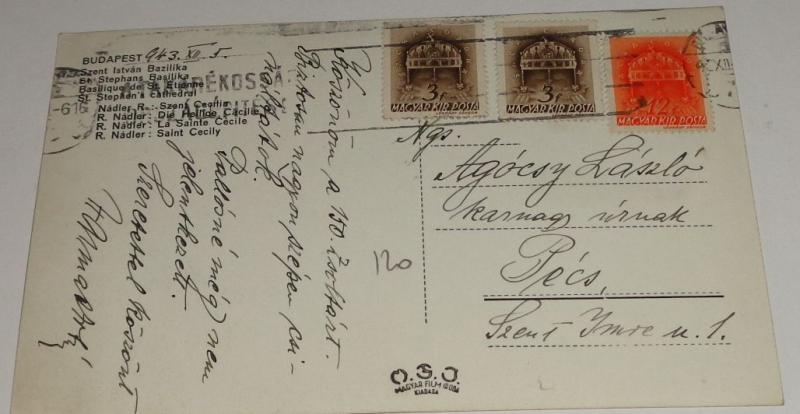 BUDAPEST 943. XII. 5.
Szent István Bazilika
St Stephans Basilika
Basilique de St. Etienne
St. Stephen's cathedral
Nádler R.: Szent Cecilia
R. Nádler: Die Heilige Cäcilie
R. Nádler: La Sainte Cecile
R. Nádler: Saint Cecily
Köszönöm a 150. Zsoltárt.
Biztosan nagyon szépen
Pallósné még nem
jelentkezett.
Szeretettel köszönt
3f
MAGYAR KIR POSTA
3f
MAGYAR KIR POSTA
12f
MAGYAR KIR POSTA
Ngs.
Agócsy László
karnagy úrnak
Pécs,
Szent Imre u. 1.
120
O.G.O.
MAGYAR FILM IRODA
KIADÁSA